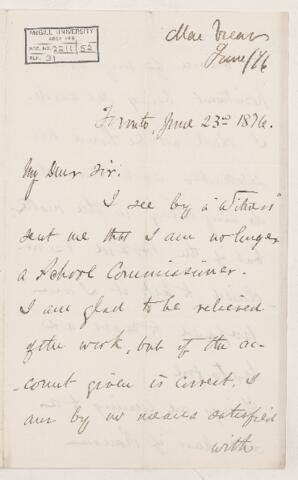 McGILL UNIVERSITY
ACC. NO. 2211 52
REF. 31
June /76
Toronto, June 23rd 1876.
My Dear Sir.
I see by a "Witness"
sent me that I am no longer
a School Commissioner.
I am glad to be relieved
of the work, but if the ac-
-count given is correct, I
am by no means satisfied
with